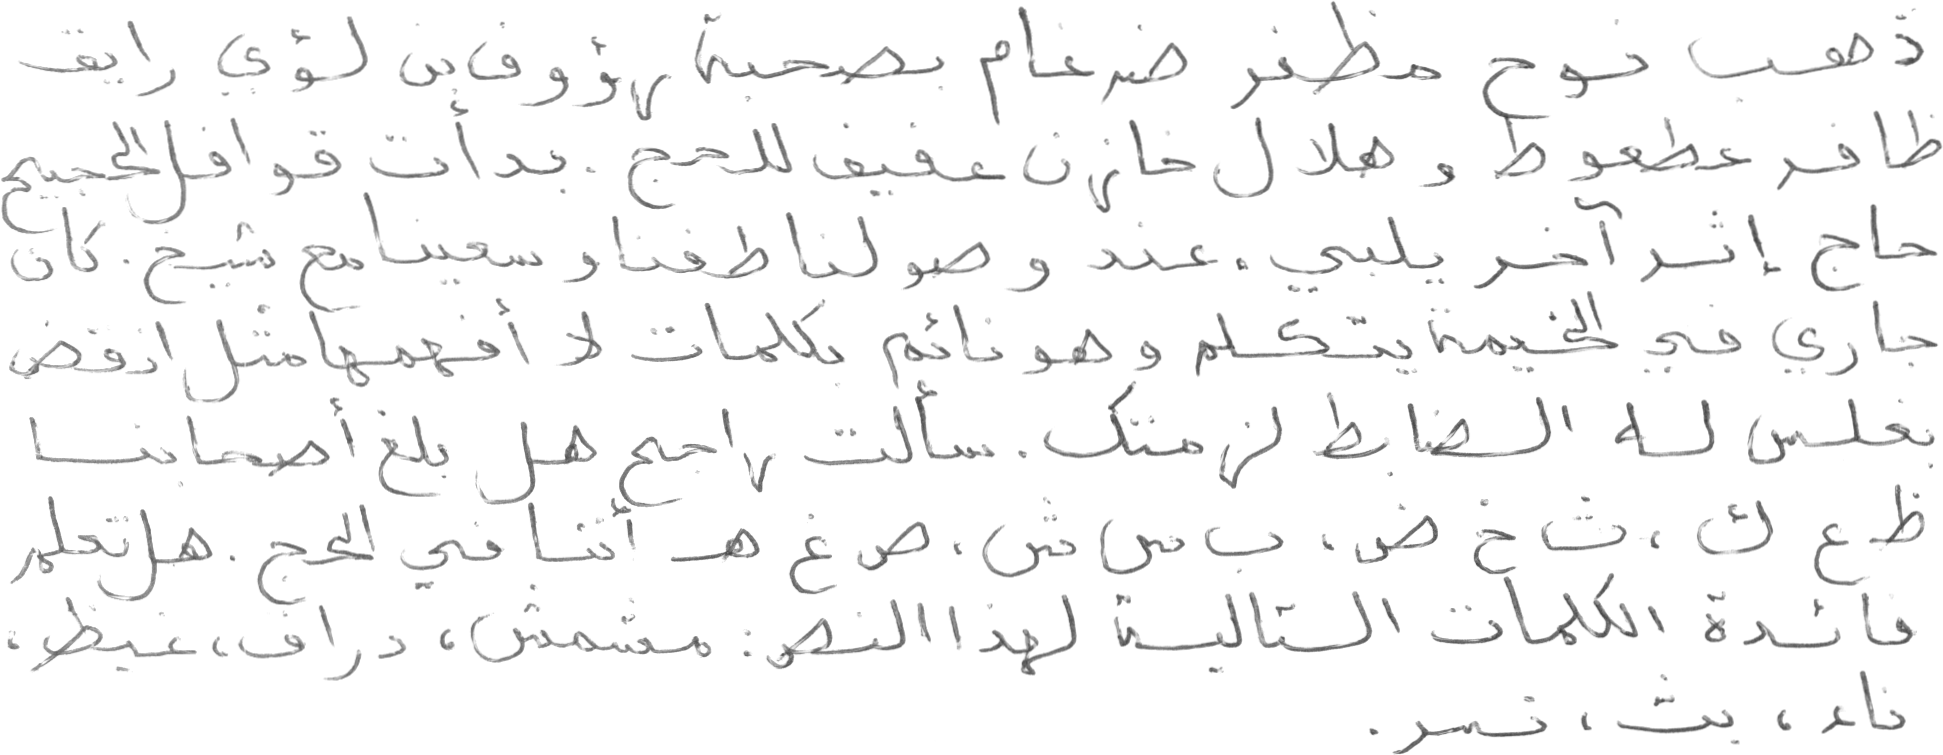 ذهب نوح مظفر ضرغام بصحبة رؤوف بن لؤي رايق
ظافر عطعوط و هلال خازن عفيف للحج . بدأت قوافل الحجيج
حاج إثر آخر يلبي . عند وصولنا طفنا و سعينا مع شيخ . كان
جاري في الخيمة يتكلم و هو نائم بكلمات لا أفهمها مثل انقض
بغلس له الضابط لزمتك . سألت راجح هل بلغ أصحابنا
ظ ع ك ، ث خ ض ، ب س ش ، ص غ هـ أننا في الحج . هل تعلم
فائدة الكلمات التالية لهذا النص : مشمش ، دراف ، غيظ ،
ناء ، بث ، نسر .